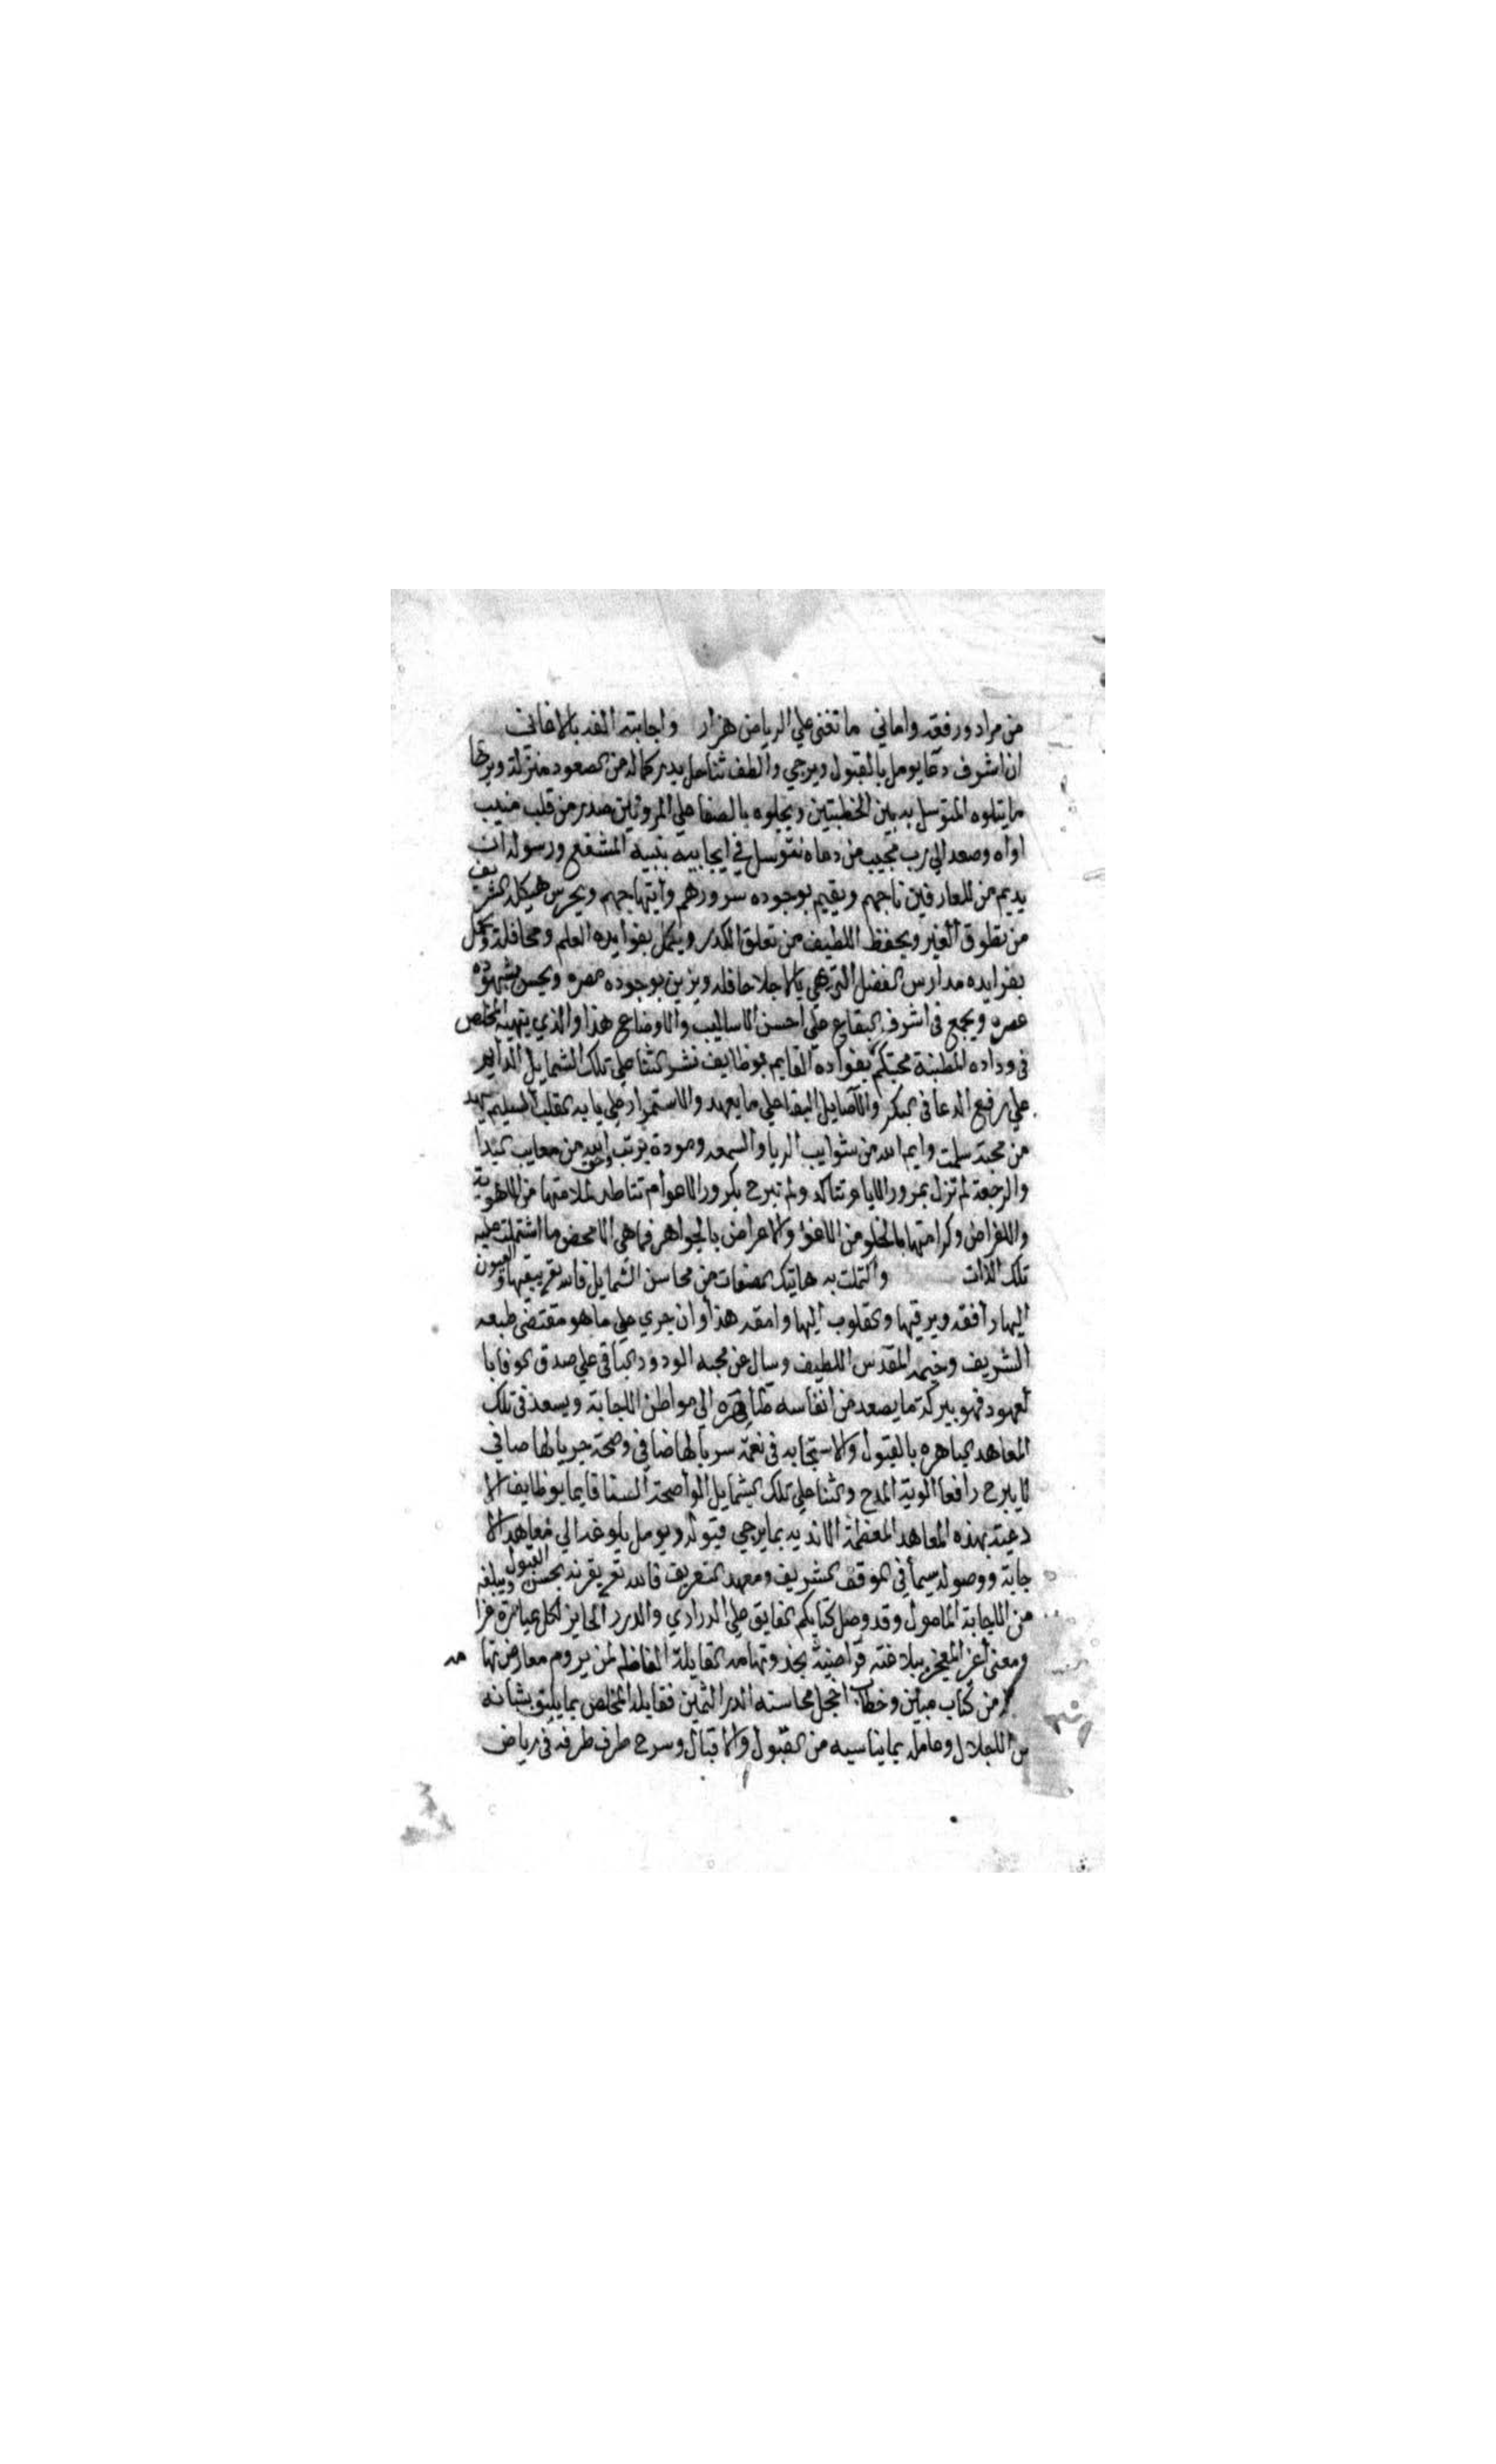 من مراد ورفعة واماني ما تغنى علي الرياض هزار واجابته الغد بالاغاني
ان اشرف دعا يومل بالقبول ويرجي والطف ثنا حل بدر كماله من الصعود منزلة وبرجا
ما يتلوه المتوسل به بين الخطبتين ويجلوه بالصفا علي المروتين صدر من قلب منيب
اواه وصعد الي رب مجيب من دعاه نتوسل في ايجابيه بنبيه المشفع ورسوله ان
يديم من للعارفين تاجهم ويقيم بوجوده سرورهم وابتهاجهم ويحرس هيكله الشريف
من تطرق الغير ويحفظ اللطيف من تعلق الكدر ويكمل بفوايده العلم ومحافله ويجمل
بفرايده مدارس الفضل التي هي بالاجلا حافله ويزين بوجوده مصره ويحسن بشهوده
عصره ويجمع في اشرف البقاع علي احسن الاساليب والاوضاع هذا والذي ينهيه المخلص
في وداده المطنبة محبتكم بفواده القايم بوظايف نشر الثنا علي تلك الشمايل الداير
علي رفع الدعا في البكر والآصايل البقا علي ما يعهد والاستمرار علي ما به القلب السليم يشهد
من محبة سلمت وايم الله من شوايب الريا والسمعه ومودة برئت وحق الله من معايب
والرجعة لم تزل بمرور الايام تتاكد ولم تبرح بكرور الاعوام تتاطد لسلامتها من الاهوية
والاغراض وكرامتها بالخلو من الاعراض بالجواهر فما هي الا محض ما اشتملت عليه
تلك الذات واكتملت به هاتيك الصفات من محاسن الشمايل فالله تع يبقيها والعيون
اليها رافقه ويرقيها والقلوب اليها وامقه هذا وان جري علي ما هو مقتضى طبعه
الشريف وخيمه المقدس اللطيف وسال عن محبه الودود الباقي علي صدق الوفا با
لعهود فهو ببركة ما يصعد من انفاسه الي مواطن الاجابة ويسعد في تلك
المعاهد الباهره بالقبول والاستجابه في نعمة سربالها ضافي وصحة جريالها صافي
لا يبرح رافعا الوية المدح والثنا علي تلك الشمايل الواضحة السنا قايما بوظايف الا
دعية بهذه المعاهد المعظمة الاندية بما يرجي قبوله ويومل بلوغه الي معاهد الا
جابة ووصوله سيما في الموقف الشريف ومعهد التعريف فالله تع يقرنه بحسن القبول ويبلغه
من الاجابة المامول وقد وصل كتابكم الفايق علي الدراري والدرر الحايز لكل عبارة غرا
ومعنى اغر المعجز ببلاغته نجد وتهامه القايلة الفاظه لمن يروم معارضتها مه
من كتاب مبين وخطاب اخجل محاسنه الدر الثمين فقابله المخلص بما يليق بشانه
من الاجلال وعامله بما يناسبه من القبول والاقبال وسرح طرف طرفه في رياض